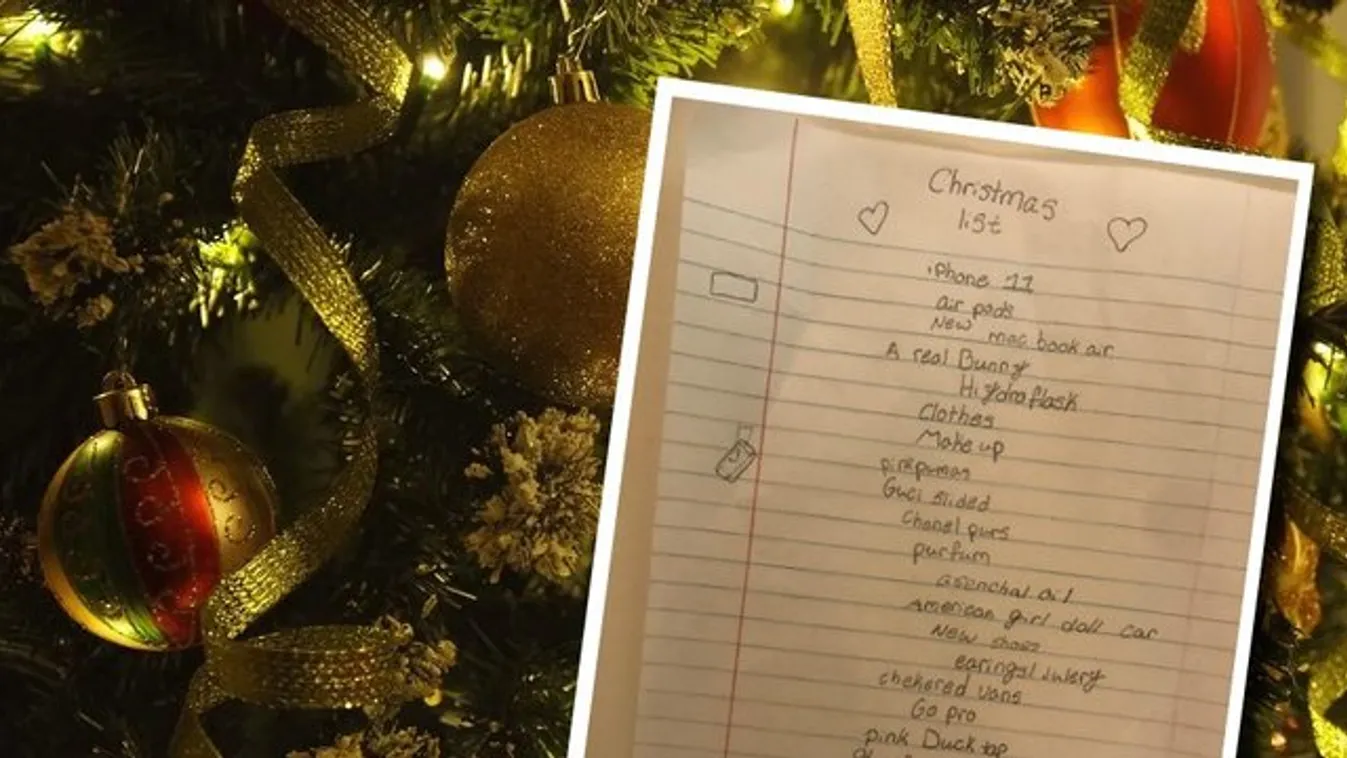 Christmas
list
iPhone 11
air pods
New mac book air
A real Bunny
Hydroflask
Clothes
Make up
pink pumas
Guci slided
Chanel purs
purfum
asenchal oil
American girl doll car
New shoes
earings/Juwery
chekered vans
Go pro
pink Duck tap